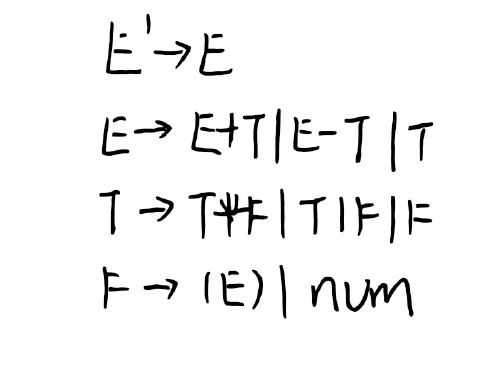 E' → E
E → E+T | E-T | T
T → T*F | T/F | F
F → (E) | num